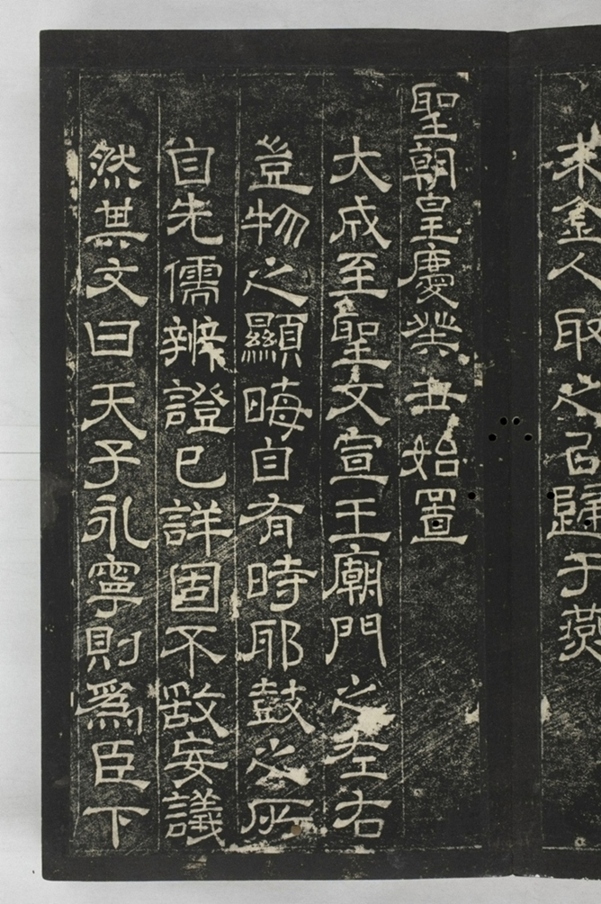 来金人取之以歸于燕
聖朝皇慶癸丑始置
大成至聖文宣王廟門之左右
豈物之顯晦自有時耶鼓之所
自先儒辨證已詳固不敢妄議
然其文曰天子永寧則為臣下